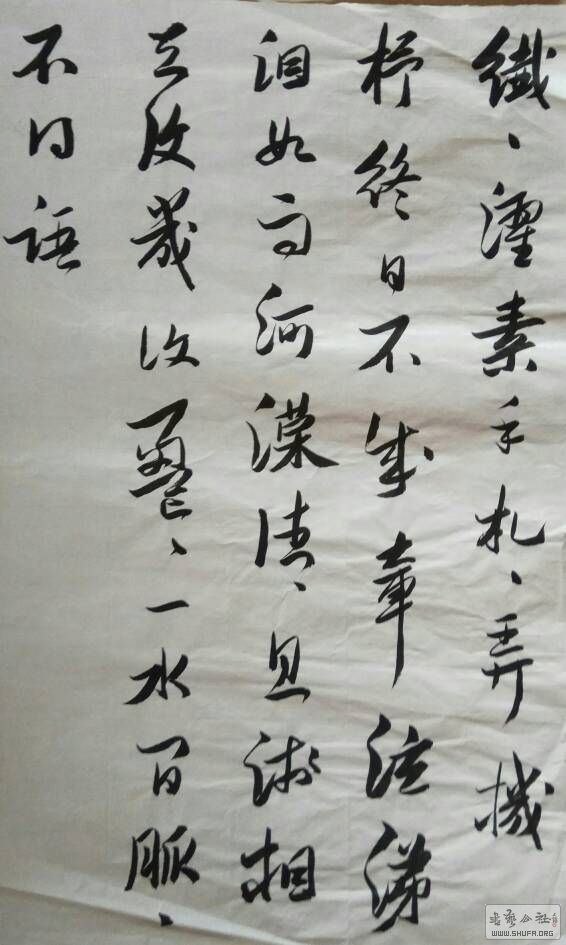 纖、濯素手札、弄機
杼終日不成章泣涕
泪如雨河漢清、且淺相
去復幾許盈、一水間脈、
不得語
WWW.SHUFA.ORG